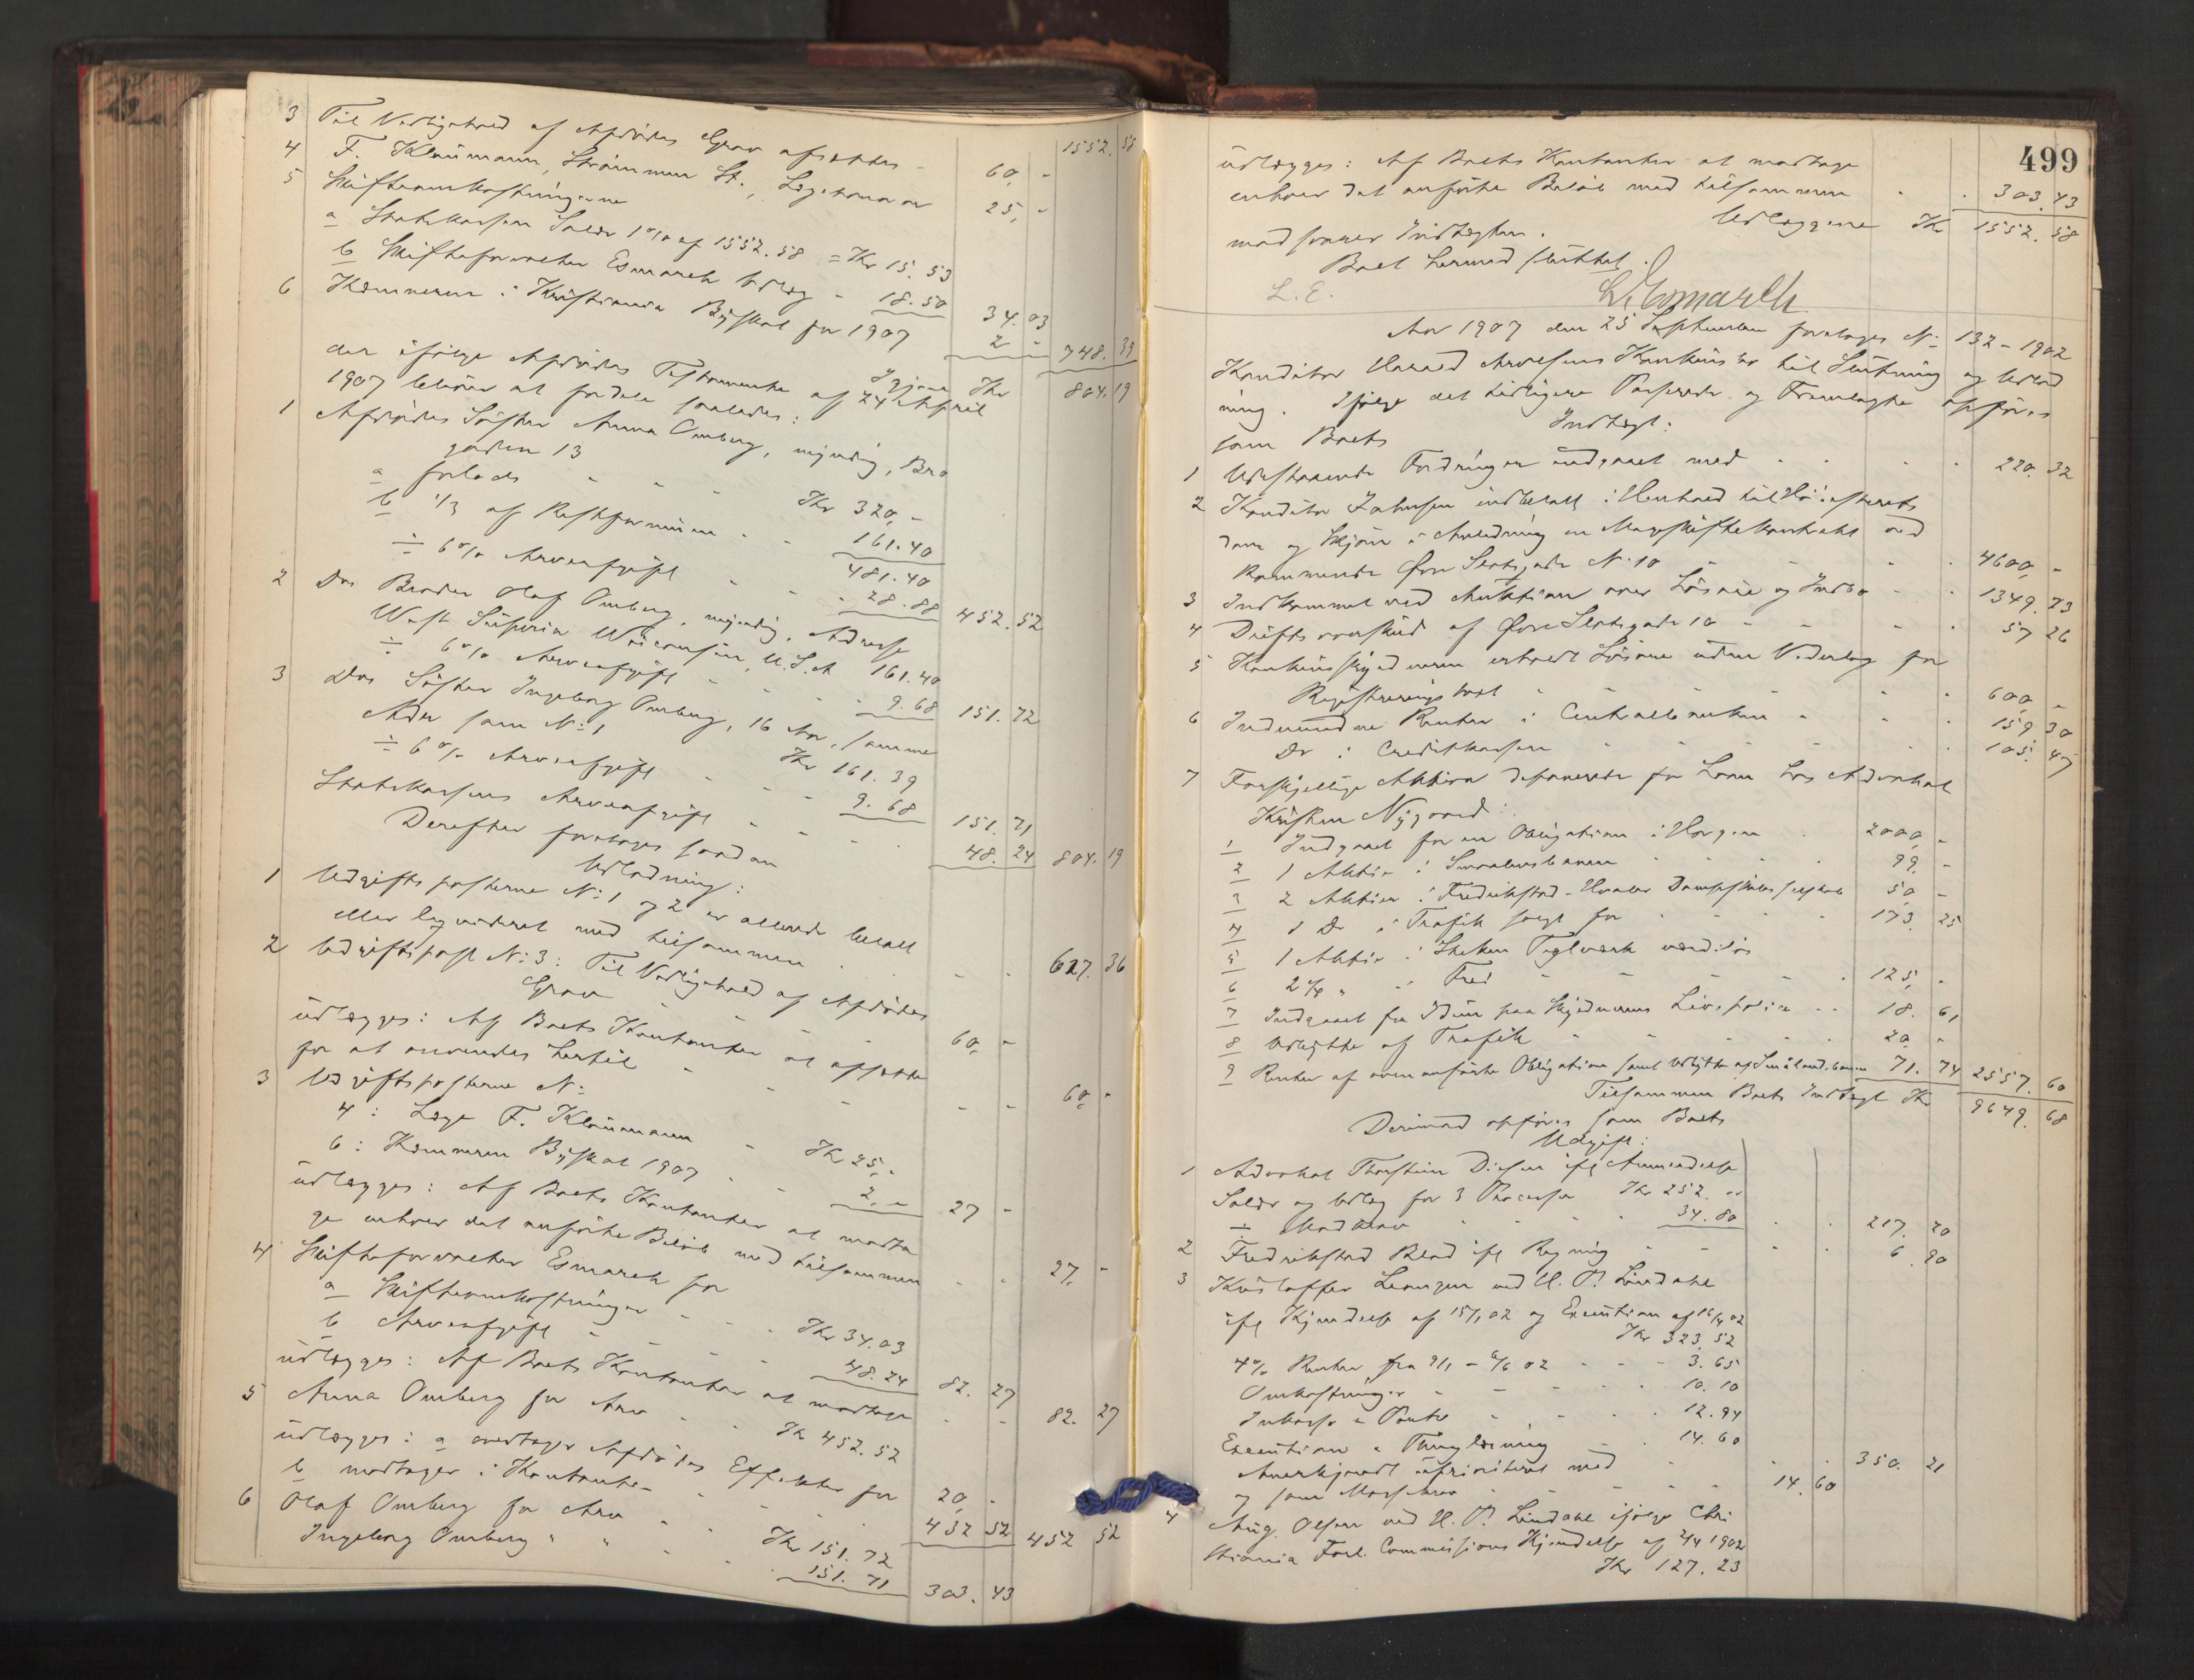 1552. 58
3 Til Vedligehold af Afdødes Grav afsættes - 60, -
4 F. Klaumann, Strømmen St., Lægehonorar 25, -
5 Skifteomkostningerne
a Statskassen Salær 1% af 1552.58 = Kr 15. 53
b Skifteforvalter Esmarch Udlæg - 18. 50 34. 03
6 Kæmneren i Kristiania Byskat for 1907 2 - 748. 39
Igjen Kr 804. 19
der ifølge Afdødes Testamente af 24 April
1907 bliver at fordele saaledes:
1 Afdødes Søster Anna Omberg, myndig, Bro
gaden 13
a forlods - - - Kr 320, -
b 1/3 af Restsummen - - 161. 40
481. 40
÷ 6% Arveafgift - - - 28. 88 452. 52
2 Des Broder Olaf Omberg, myndig, Adresse
West Superior Wisconsin, U.S.A 161. 40
÷ 6% Arveafgift - - - 9. 68 151. 72
3 Des Søster Ingeborg Omberg, 16 Aar, samme
Adr som N: 1 Kr 161. 39
÷ 6% Arveafgift - - - 9. 68 151. 71
Statskassens Arveafgift - - - 48. 24 804. 19
Derefter foretages saadan
Udlodning:
1 Udgiftsposterne N: 1 og 2 er allerede betalt
eller likvideret med tilsammen - - 627. 36
2 Udgiftspost N: 3: Til Vedligehold af Afdødes
Grav 60, -
udlægges: Af Boets Kontanter at afsætte
for at anvendes hertil - - - 60, -
3 Udgiftsposterne N:
4: Læge F. Klaumann - Kr 25, -
6: Kæmneren Byskat 1907 - 2, - 27 -
udlægges: Af Boets Kontanter at modta
ge enhver det anførte Beløb med tilsammen - - 27, -
4 Skifteforvalter Esmarch for
a Skifteomkostninger - - - Kr 34. 03
b Arveafgift - - - 48. 24 82. 27
udlægges: Af Boets Kontanter at modtage - - 82. 27
5 Anna Omberg for Arv - - Kr 452. 52
udlægges: a overtagne Afdødes Effekter for 20, -
b modtager i Kontanter - - 432 52 452 52
6 Olaf Omberg for Arv - - Kr 151. 72
Ingeborg Omberg " " - - 151. 71 303. 43
499
udlægges: Af Boets Kontanter at modtage
enhver det anførte Beløb med tilsammen - - 303. 43
Udlæggene Kr 1552. 58
modsvarer Indtægten.
Boet hermed sluttet.
L. E. L. Esmarch
Aar 1907 den 25 September foretoges N: 132 - 1902
Konditor Harald Arvesens Konkursbo til Slutning og Udlod
ning. Ifølge det tidligere Passerede og Fremlagte opføres
som Boets Indtægt:
1 Udestaaende Fordringer indgaaet med - - - - 220. 32
2 Konditor Johnsen indbetalt i Henhold til Høiesterets
dom og Skjøn i Anledning en Mageskiftekontrakt ved
kommende Øvre Slotsgade N: 10 - - - - 4600, -
3 Indkommet ved Auktion over Løsøre og Indbo - - 1349. 73
4 Driftsoverskud af Øvre Slotsgade 10 - - - - 57 26
5 Konkursskyldneren erholdt Løsøre uden Vederlag for
Registreringstaxt - - - - 600, -
6 Indvundne Renter i Centralbanken - - - 159 30
Do i Creditkassen - - - - 105. 47
7 Forskjellige Aktiva deponerede for Laan hos Advokat
Kristen Nygaard:
1 Indgaaet for en Obligation i Horgen - 2000, -
2 1 Aktie i Smaalensbanen - - - 99. -
3 2 Aktier i Fredrikstad-Hvaler Dampskibsselskab 50, -
4 1 Do i Trafik solgt for - - - 173. 25
5 1 Aktie i Teglværk værdiløs
6 " " - - - 125, -
7 Indgaaet fra Idun paa Skyldnerens Livspolice - - 18. 61
8 Udbytte af Trafik - - - 20, -
9 Renter af ovenanførte Obligation samt Udbytte af Smaalensbanen 71. 74 2557. 60
Tilsammen Boets Indtægt Kr 9649. 68
Derimod opføres som Boets
Udgift:
1 Advokat Thorstein Diesen ifl Anmeldelse
Salær og Udlæg for 3 Processer Kr 252. "
÷ Modkrav - - - 34. 80 - - 217. 20
2 Fredrikstad Blad ifl Regning - - - - 6 90
3 Kristoffer Leangen ved H. P. Lindahl
ifl Kjendelse af 15/1 02 og Execution af 16/4 02
Kr 323. 52
4% Renter fra 9/1 - 6/6 02 - - - 3. 65
Omkostninger - - - - 10. 10
Inkasso & Porto - - - 12. 94
Execution & Thinglæsning - - 14. 60
Anerkjendt uprioriteret med - - 350. 21
og som Massekrav - - - 14. 60
4 Aug. Olsen ved H. P. Lindahl ifølge Chri
stiania Forl. Commissions Kjendelse af 2/4 1902
Kr 127. 23